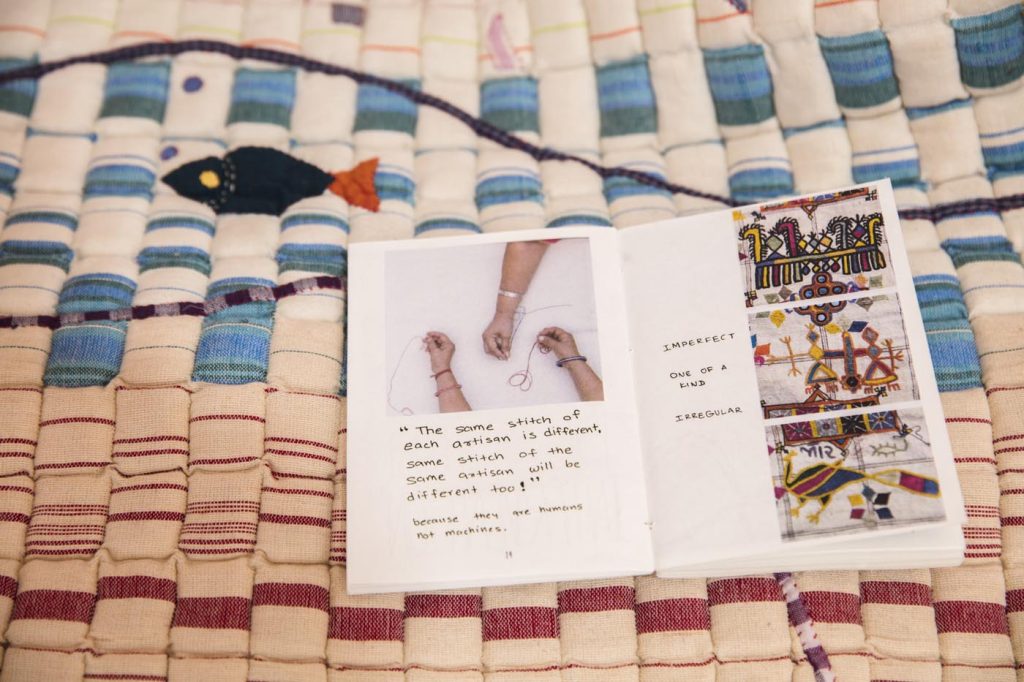 “ The same stitch of
each artisan is different,
same stitch of the
same artisan will be
different too! ”
because they are humans
not machines.
19
IMPERFECT
ONE OF A
KIND
IRREGULAR